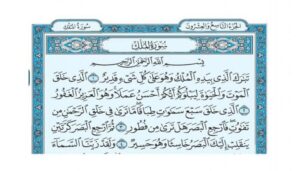 الجزء التاسع والعشرون
سورة الملك
سورة الملك
بسم الله الرحمن الرحيم
تَبَٰرَكَ ٱلَّذِى بِيَدِهِ ٱلْمُلْكُ وَهُوَ عَلَىٰ كُلِّ شَىْءٍ قَدِيرٌ ١ ٱلَّذِى خَلَقَ
ٱلْمَوْتَ وَٱلْحَيَوٰةَ لِيَبْلُوَكُمْ أَيُّكُمْ أَحْسَنُ عَمَلًا وَهُوَ ٱلْعَزِيزُ ٱلْغَفُورُ
٢ ٱلَّذِى خَلَقَ سَبْعَ سَمَٰوَٰتٍ طِبَاقًا مَّا تَرَىٰ فِى خَلْقِ ٱلرَّحْمَٰنِ مِن
تَفَٰوُتٍ فَٱرْجِعِ ٱلْبَصَرَ هَلْ تَرَىٰ مِن فُطُورٍ ٣ ثُمَّ ٱرْجِعِ ٱلْبَصَرَ كَرَّتَيْنِ
يَنقَلِبْ إِلَيْكَ ٱلْبَصَرُ خَاسِئًا وَهُوَ حَسِيرٌ ٤ وَلَقَدْ زَيَّنَّا ٱلسَّمَآءَ